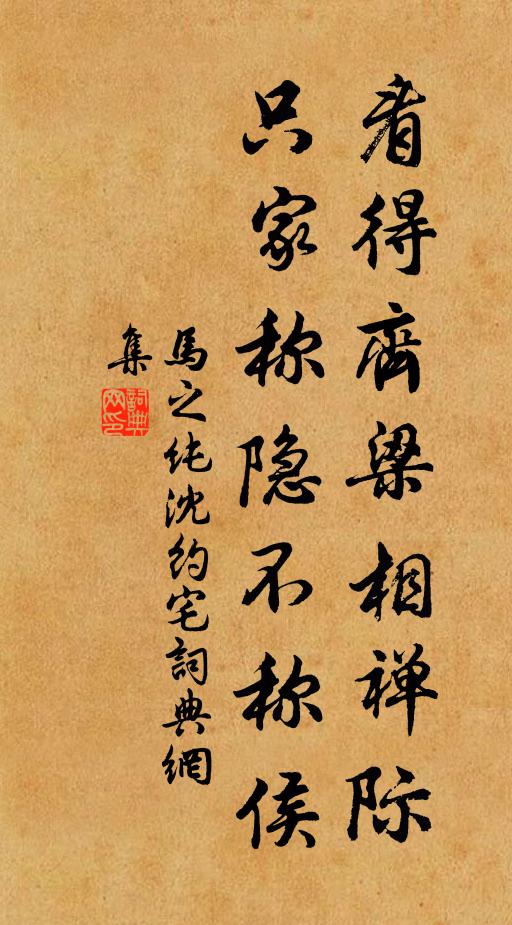 看得齊梁相禅际
只家称隐不称侯
馬之纯沈约宅詞典網
集
詞典網印